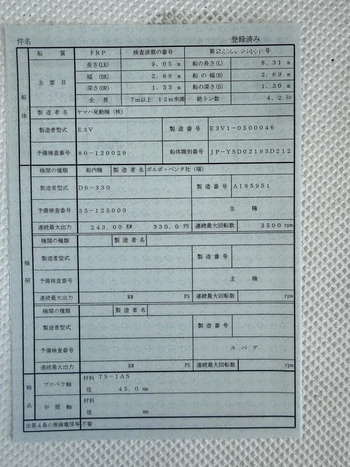 件名 登録済み
船体 船質 FRP 検査済票の番号
主要目 長さ(LR) 9.05 m 船の長さ(L) 8.31 m
幅(BR) 2.69 m 船の幅(B) 2.69 m
深さ(DR) 1.33 m 船の深さ(D) 1.30 m
全長 7m以上 12m未満 総トン数 4.2
製造者名 ヤマハ発動機(株)
製造者型式 E3V 製造番号 E3V1-0500046
予備検査番号 80-120029 船体識別番号 JP-YSD02195D212
機関 機関の種類 船内機 製造者名 ボルボ・ペンタ社(瑞)
製造者型式 D6-330 製造番号 A185951
予備検査番号 35-123009 主機
連続最大出力 243.00 KW 330.0 PS 連続最大回転数 3500 rpm
機関の種類 製造者名
製造者型式 製造番号
予備検査番号 主機
連続最大出力 KW PS 連続最大回転数 rpm
機関の種類 製造者名
製造者型式 製造番号
予備検査番号 スペア
連続最大出力 KW PS 連続最大回転数 rpm
軸系 プロペラ軸 材料 TS-1AS
径 45.0 mm
中間軸 材料
径 mm
法第4条の無線電信等 不要